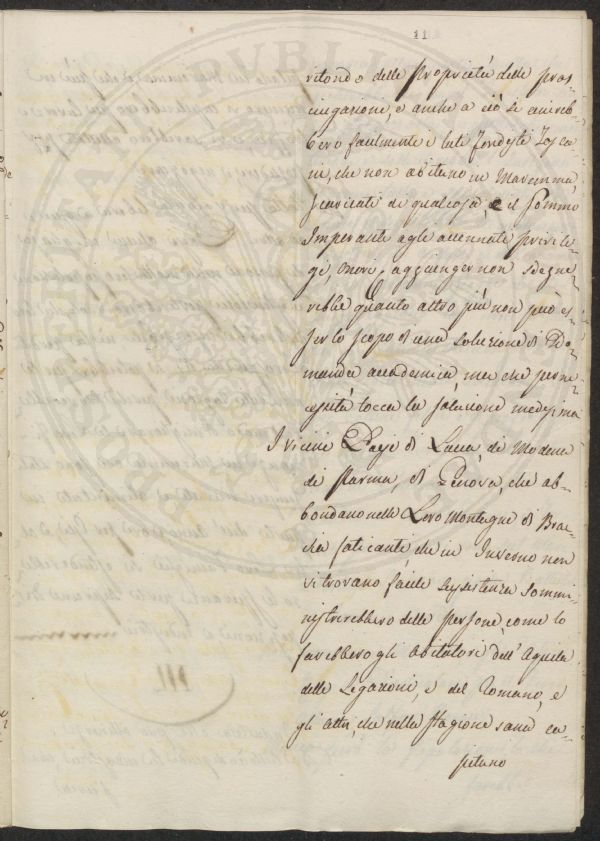 11
ritondo delle Proprietà delle pros=
ciugazione, e anche a ciò si avereb=
bero facilmente i tuti Fondisti Tosca=
ni, che non abitano in Maremma,
scaricati di qualcosa, e il Sommo
Imperante agle accennate privile=
gi, onori, aggiunger non sdegne=
rebbe quanto altro più non può es=
ser lo scopo di una soluzione di Do=
manda accademica, ma che per ne=
cessità tocca la soluzione medesima
I vicini Paesi di Lucca, di Modena
di Parma, di Genova, che ab=
bondano nelle Loro Montagne di Bra=
cia faticanti, che in Inverno non
vi trovano facile sussistenza sommi=
nistrerebbero delle persone, come lo
farebbero gli abitatori dell' Aquila
delle Legazioni, e del Romano, e
gli altri, che nella stagione sana ca=
pitano